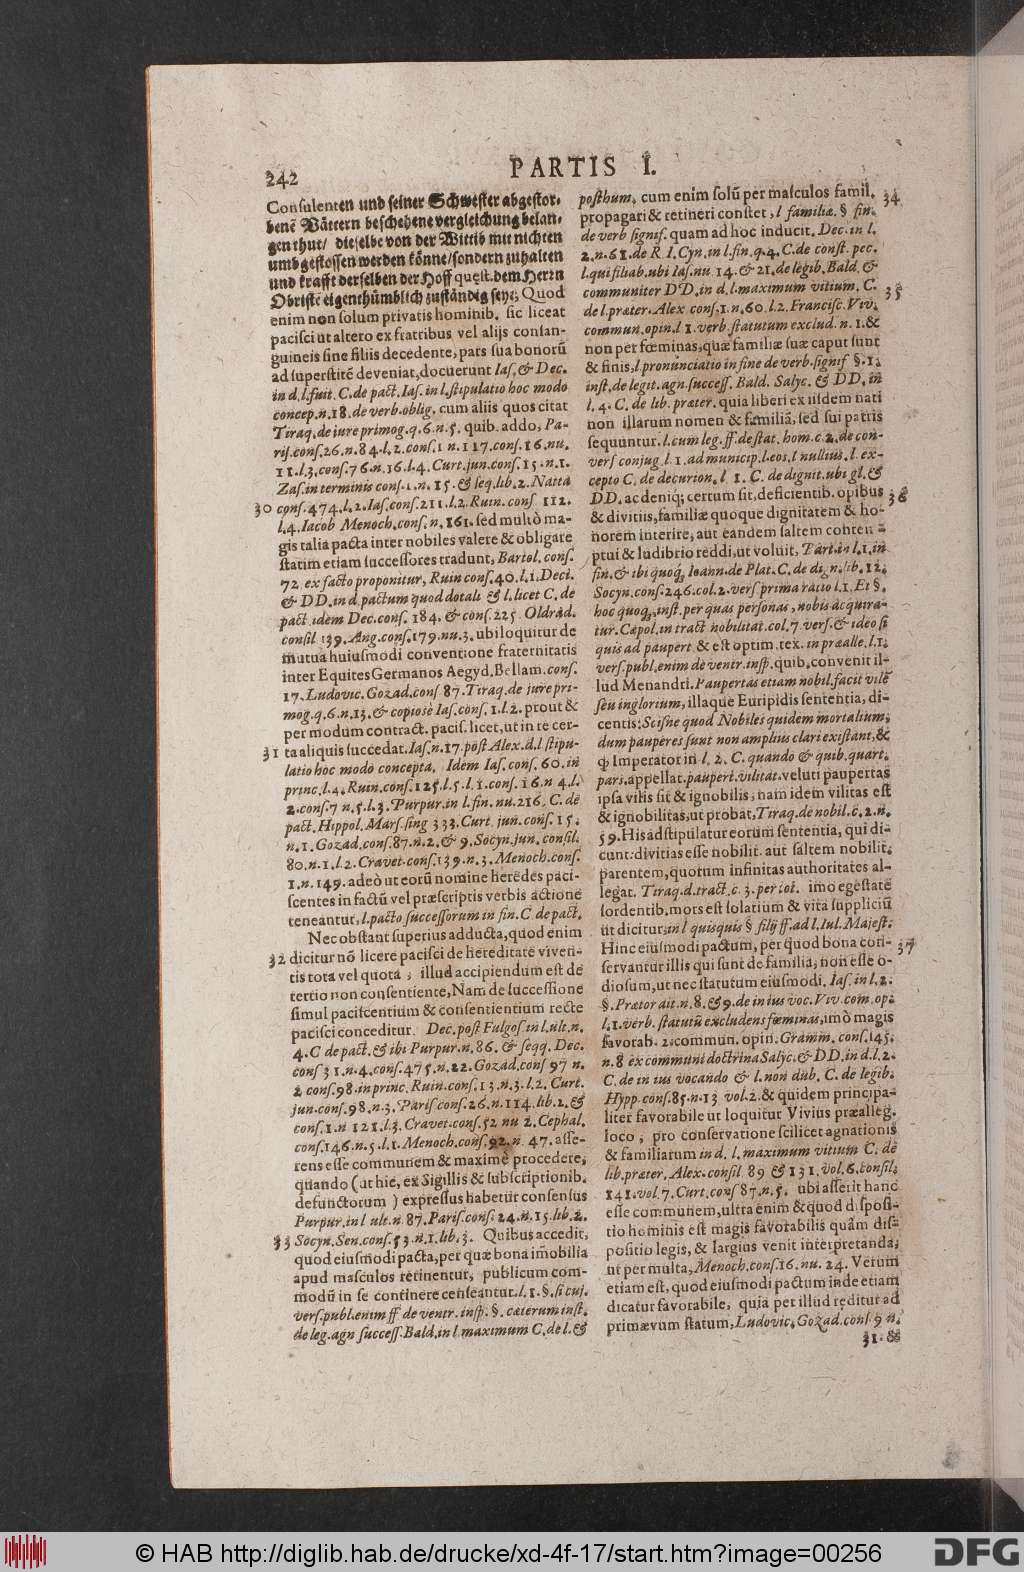 242
PARTIS I.
Consulenten und seiner Schwester abgestor-
benẽ Vättern beschehene vergleichung belan-
gen thut/ dieselbe von der Wittib mit nichten
umbgestossen werden könne/sondern zuhalten
und krafft derselben der Hoff quęst. dem Herrn
Obristẽ eigenthümblich zuständig seye; Quod
enim non solum privatis hominib. sic liceat
pacisci ut altero ex fratribus vel alijs consan-
guineis sine filiis decedente, pars sua bonorũ
ad superstitẽ deveniat, docuerunt Ias. & Dec.
in d. l. fuit. C. de pact. Ias. in l. stipulatio hoc modo
concep. n. 18. de verb. oblig. cum aliis quos citat
Tiraq. de iure primog. q. 6. n. 5. quib. addo, Pa-
ris. cons. 26. n. 84. l. 2. cons. 1 n. 117. cons. 16. nu.
11. l. 3. cons. 76. n. 16. l. 4. Curt. jun. cons. 15. n. 1.
Zas. in terminis cons. 1. n. 15. & seq. lib. 2. Natta
30 cons. 474. l. 2. Ias. cons. 211. l. 2. Ruin. cons 112.
l. 4. Iacob Menoch. cons. n. 161. sed multò ma-
gis talia pacta inter nobiles valere & obligare
statim etiam successores tradunt, Bartol. cons.
72 ex facto proponitur, Ruin cons. 40. l. 1. Deci.
& DD. in d. pactum quod dotali & l. licet C. de
pact. idem Dec. cons. 184. & cons. 225 Oldrad.
consil 139. Ang. cons. 179. nu. 3. ubi loquitur de
mutua huiusmodi conventione fraternitatis
inter Equites Germanos Aegyd. Bellam. cons.
17. Ludovic. Gozad. cons 87. Tiraq. de jure pri-
mog. q. 6. n. 13. & copiosè Ias. cons. 1. l. 2. prout &
per modum contract. pacis. licet, ut in re cer-
31 ta aliquis succedat. Ias. n. 17. post Alex. d. l stipu-
latio hoc modo concepta. Idem Ias. cons. 60. in
princ. l. 4. Ruin. cons. 125. l. 5. l. 1. cons. 16. n 4. l.
2. cons. 7 n. 5. l. 3. Purpur. in l. fin. nu. 216. C. de
pact. Hippol. Mars. sing 333. Curt. jun. cons. 15.
n. 1. Gozad. cons. 87. n. 2. & 9. Socyn. jun. consil.
80. n. 1. l. 2. Cravet. cons. 139. n. 3. Menoch. cons.
1. n. 149. adeò ut eorũ nomine heredes paci-
scentes in factũ vel præscriptis verbis actione
teneantur, l. pacto successorum in fin. C. de pact.
Nec obstant superius adducta, quod enim
32 dicitur nõ licere pacisci de hereditate viven-
tis tota vel quota ; illud accipiendum est de
tertio non consentiente, Nam de successione
simul paciscentium & consentientium recte
pacisci conceditur. Dec. post Fulgos. in l. ult. n.
4. C de pact. & ibi Purpur. n. 86. & seqq. Dec.
cons 31. n. 4. cons. 475. n. 22. Gozad. cons 97 n.
2 cons. 98. in princ. Ruin. cons. 13. n. 3. l. 2. Curt.
jun. cons. 98. n. 3. Paris. cons. 26. n. 114. lib. 2. &
cons. 1. n 121. l. 3. Cravet. cons. 52 nu 2. Cephal.
cons. 146. n. 5. l. 1. Menoch. cons. 92. n 47. asse-
rens esse communem & maximè procedere,
quando (ut hic, ex Sigillis & subscriptionib.
defunctorum ) expressus habetur consensus
Purpur. in l ult. n. 87. Paris. cons. 24. n. 15. lib. 2.
33 Socyn. Sen. cons. 53. n. 1. lib. 3. Quibus accedit,
quod eiusmodi pacta, per quæ bona imobilia
apud masculos retinentur, publicum com-
modũ in se continere censeantur. l. 1. §. si cuj.
vers. publ. enim ff de ventr. insp. §. cæterum inst.
de leg. agn success. Bald. in l. maximum C. de l. &
posthum. cum enim solũ per masculos famil. 34
propagari & retineri constet, l familiæ. § fin.
de verb signif. quam ad hoc inducit. Dec. in l.
2. n. 61. de R I. Cyn. in l. fin. q. 4. C. de const. pec.
l. qui filiab. ubi Ias. nu 14. & 21. de legib. Bald. &
communiter DD. in d. l. maximum vitium. C. 35
de l. præter. Alex cons. 1. n. 60. l. 2. Francisc. Viv.
commun. opin. l 1. verb statutum exclud. n. 1. &
non per fœminas, quæ familiæ suæ caput sunt
& finis, l pronunciatio in fine de verb. signif §. 1.
inst. de legit. agn. success. Bald. Salyc. & DD. in
l. 4. C. de lib. præter. quia liberi ex iisdem nati
non illarum nomen & familiã, sed sui patris
sequuntur. l. cum leg. ff. de stat. hom. c. 2. de con-
vers conjug. l. 1. ad municip. l. eos. l nullius. l. ex-
cepto C. de decurion. l 1. C. de dignit. ubi gl. &
DD. ac deniq; certum sit, deficientib. opibus 36
& divitiis, familiæ quoque dignitatem & ho-
norem interire, aut eandem saltem conten-
ptui & ludibrio reddi, ut voluit, Bart. in l. 1. in
fin. & ibi quoq; Ioann. de Plat. C. de dign. lib. 12.
Socyn. cons. 246. col. 2. vers prima ratio l. 1. Et §.
hoc quoq; inst. per quas personas, nobis acquira-
tur. Cæpol. in tract nobilitat. col. 7 vers. & ideo si
quis ad paupert & est optim. tex. in præalle. l. 1.
vers. publ. enim de ventr. insp. quib. convenit il-
lud Menandri. Paupertas etiam nobil. facit vilẽ
seu inglorium, illaque Euripidis sententia, di-
centis: Scisne quod Nobiles quidem mortalium;
dum pauperes sunt non amplius clari existant, &
ꝙ Imperator in l. 2. C. quando & quib. quart.
pars. appellat. paupert. vilitat. veluti paupertas
ipsa vilis sit & ignobilis, nam idem vilitas est
& ignobilitas, ut probat, Tiraq. de nobil. c. 2. n.
59. His adstipulatur eorum sententia, qui di-
cunt: divitias esse nobilit. aut saltem nobilit.
parentem, quotum infinitas authoritates al-
legat. Tiraq. d. tract. c. 3. per tot. imo egestate
sordentib. mors est solatium & vita suppliciũ
ut dicitur, in l quisquis § filij ff. ad l. Iul. Majest.
Hinc eiusmodi pactum, per quod bona con- 37
servantur illis qui sunt de familia, non esse o-
diosum, ut nec statutum eiusmodi. Ias. in l. 2.
§. Prætor ait. n. 8. & 9. de in ius voc. Viv. com. op.
l. 1. verb. statutũ excludens fœminas, imò magis
favorab. 2. commun. opin. Gramm. cons. 145.
n. 8 ex communi doctrina Salyc. & DD. in d. l. 2.
C. de in ius vocando & l. non dub. C. de legib.
Hypp. cons. 85. n. 13 vol. 2. & quidem principa-
liter favorabile ut loquitur Vivius præalleg.
loco , pro conservatione scilicet agnationis
& familiarum in d. l. maximum vitium C. de
lib. præter. Alex. consil 89 & 131. vol. 6. consil.
141. vol. 7. Curt. cons 87. n. 5. ubi asserit hanc
esse communem, ultra enim & quod disposi-
tio hominis est magis favorabilis quàm dis-
positio legis, & largius venit interpretanda;
ut per multa, Menoch. cons. 16. nu. 24. Verum
etiam est, quod eiusmodi pactum inde etiam
dicatur favorabile, quia per illud reditur ad
primævum statum, Ludovic. Gozad. cons 9 n.
31. &
© HAB http://diglib.hab.de/drucke/xd-4f-17/start.htm?image=00256
DFG